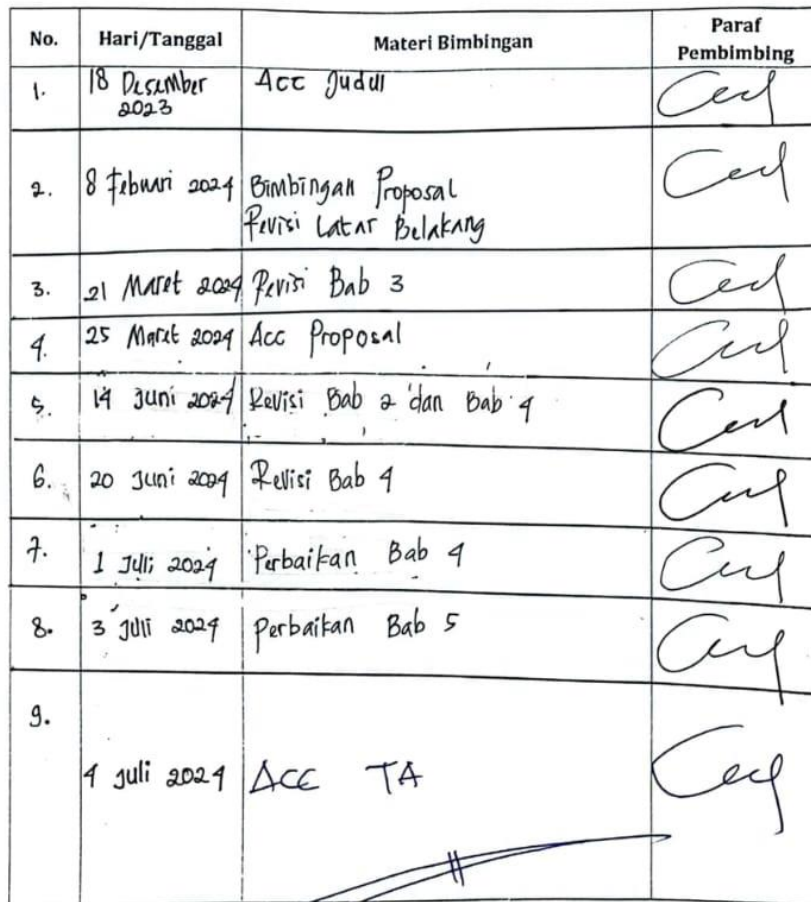 No. Hari/Tanggal Materi Bimbingan Paraf Pembimbing
1. 18 Desember 2023 Acc Judul
2. 8 Februari 2024 Bimbingan Proposal
Revisi Latar Belakang
3. 21 Maret 2024 Revisi Bab 3
4. 25 Maret 2024 Acc Proposal
5. 14 Juni 2024 Revisi Bab 2 dan Bab 4
6. 20 Juni 2024 Revisi Bab 4
7. 1 Juli 2024 Perbaikan Bab 4
8. 3 Juli 2024 Perbaikan Bab 5
9. 4 Juli 2024 ACC TA